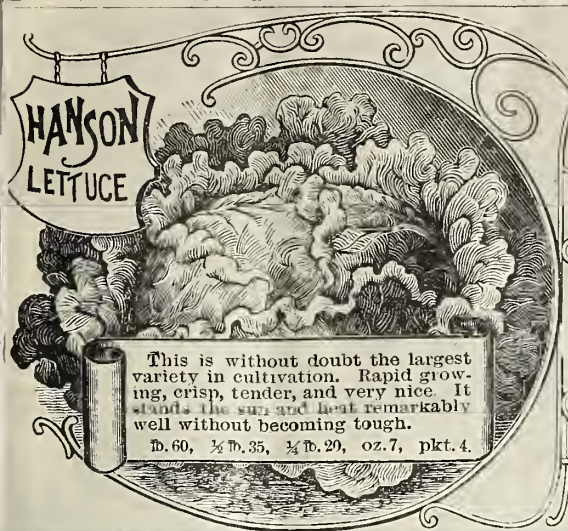 HANSON
LETTUCE
This is without doubt the largest
variety in cultivation. Rapid grow-
ing, crisp, tender, and very nice. It
stands the sun and heat remarkably
well without becoming tough.
lb. 60, ½ lb. 35, ¼ lb. 20, oz. 7, pkt. 4.